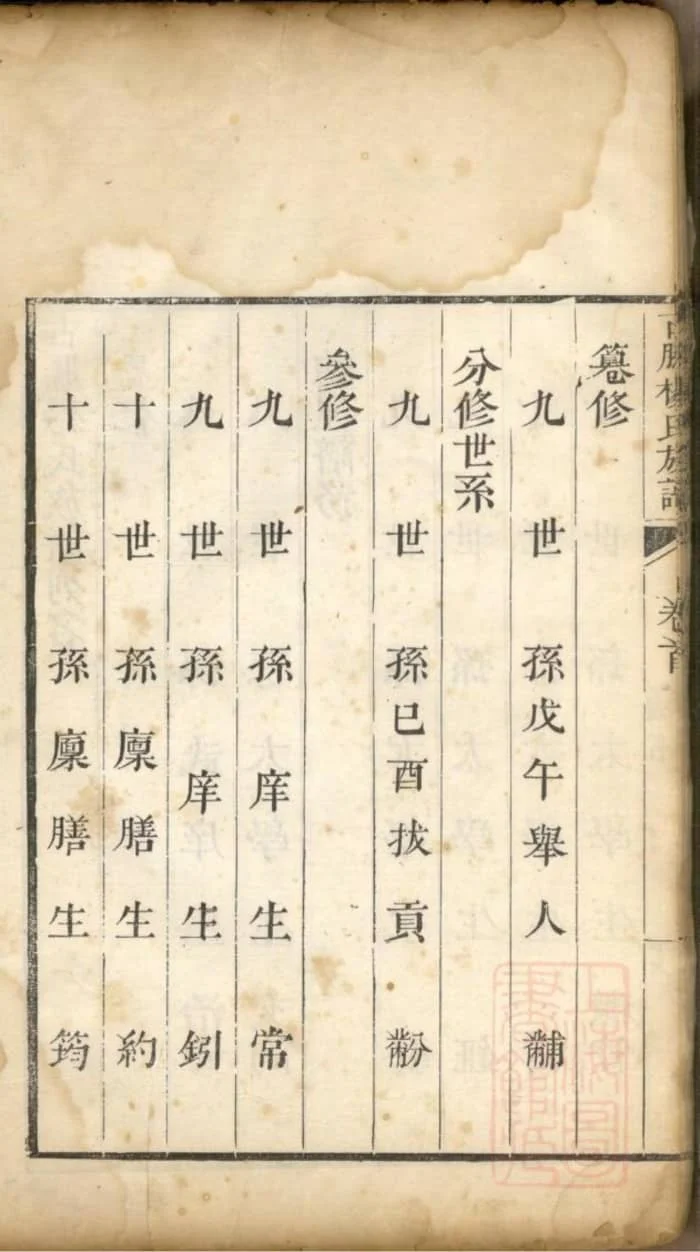 古勝楊氏族譜 卷首
纂修
九世孫戊午舉人黼
分修世系
九世孫巳酉拔貢黺
參修
九世孫庠生常
九世孫庠生釗
十世孫廩膳生約
十世孫廩膳生筠